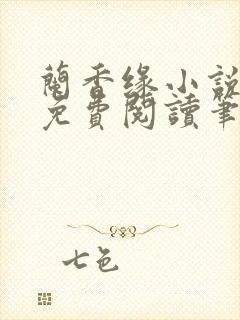 蘭香缘小説
免費閱讀筆
七色